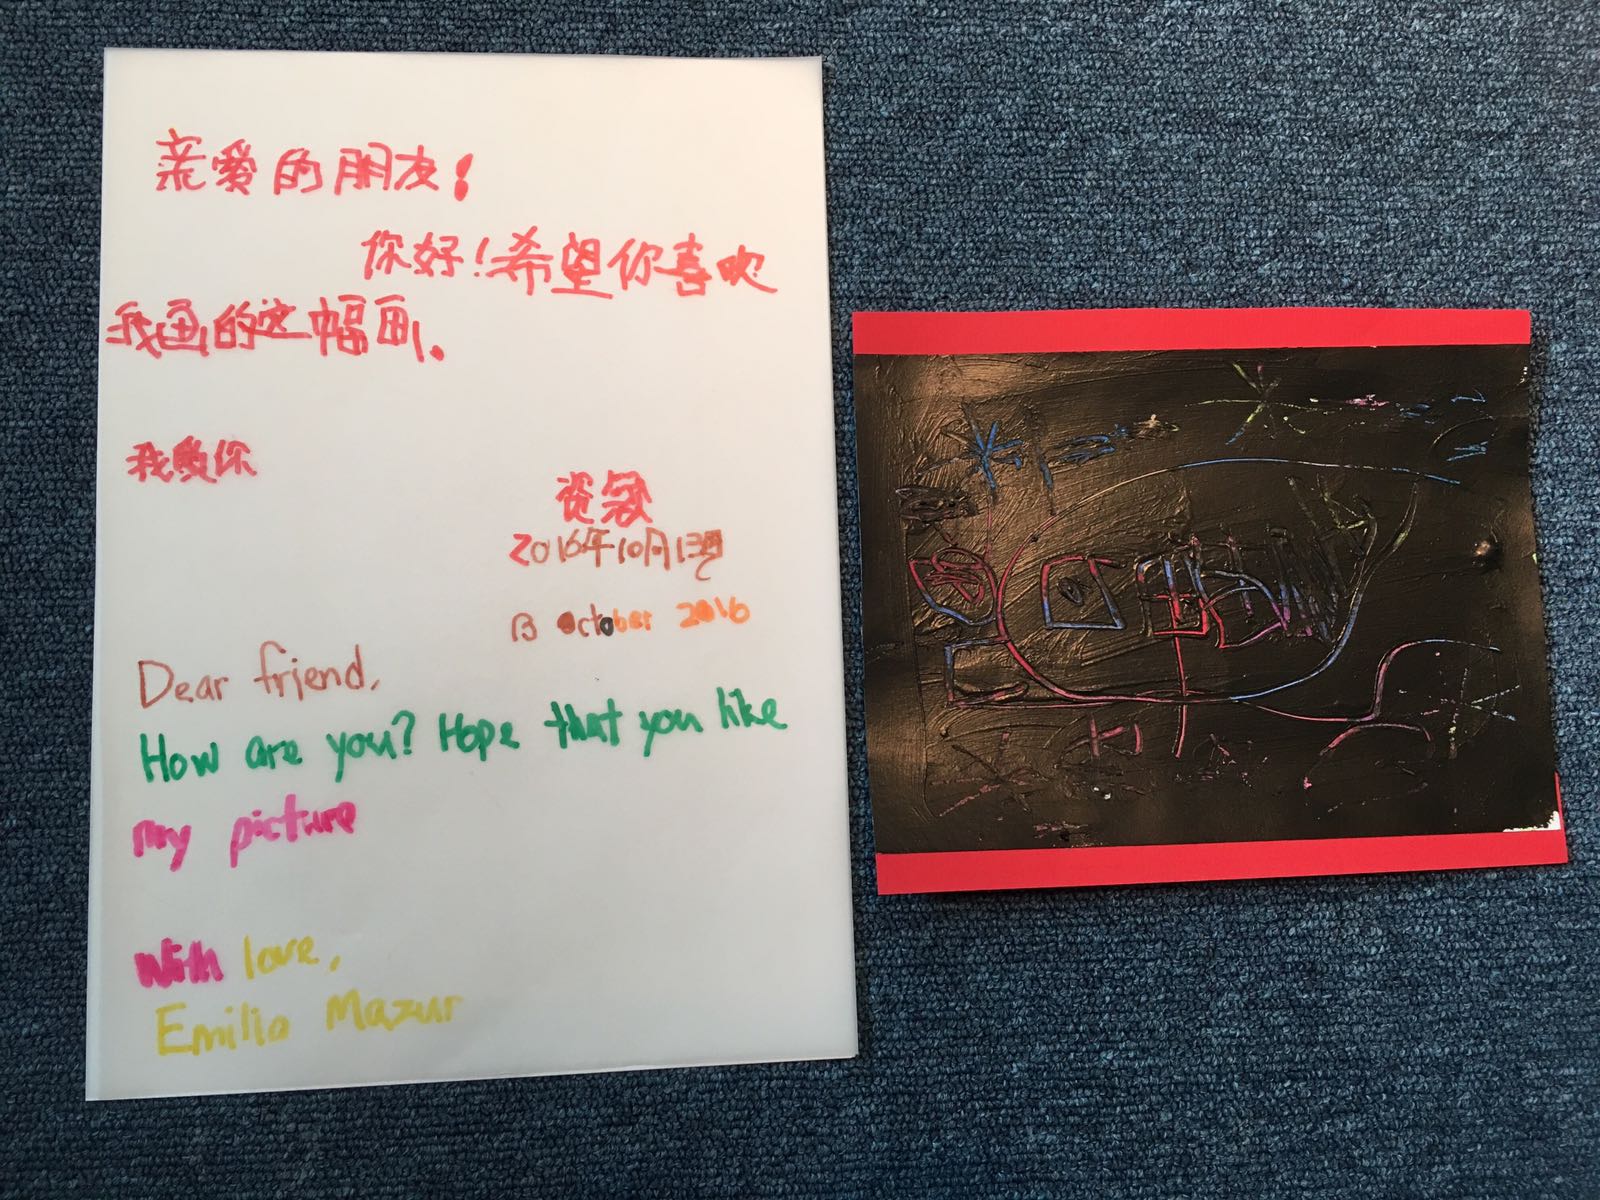 亲爱的朋友：
你好！希望你喜欢
我画的这幅画.
我爱你
资敏
2016年10月13号
13 October 2016
Dear friend,
How are you? Hope that you like
my picture
With love,
Emilia Mazur